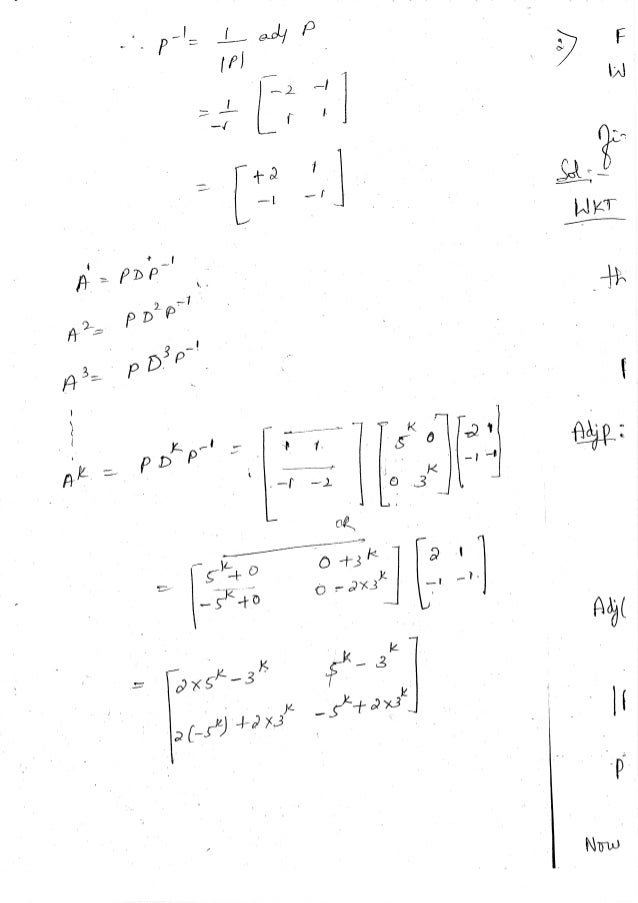 ∴ P⁻¹ = 1/|P| adj P
= 1/-1 [-2 -1; 1 1]
= [+2 1; -1 -1]
A¹ = P D¹ P⁻¹
A² = P D² P⁻¹
A³ = P D³ P⁻¹
Aᴷ = P Dᴷ P⁻¹ = [1 1; -1 -2] [5ᴷ 0; 0 3ᴷ] [2 1; -1 -1]
OR
= [5ᴷ+0 0+3ᴷ; -5ᴷ+0 0-2×3ᴷ] [2 1; -1 -1]
= [2×5ᴷ-3ᴷ 5ᴷ-3ᴷ; 2(-5ᴷ)+2×3ᴷ -5ᴷ+2×3ᴷ]
2) F
W
Sol:-
WKT
th
Adj P:
Adj(
P
Now